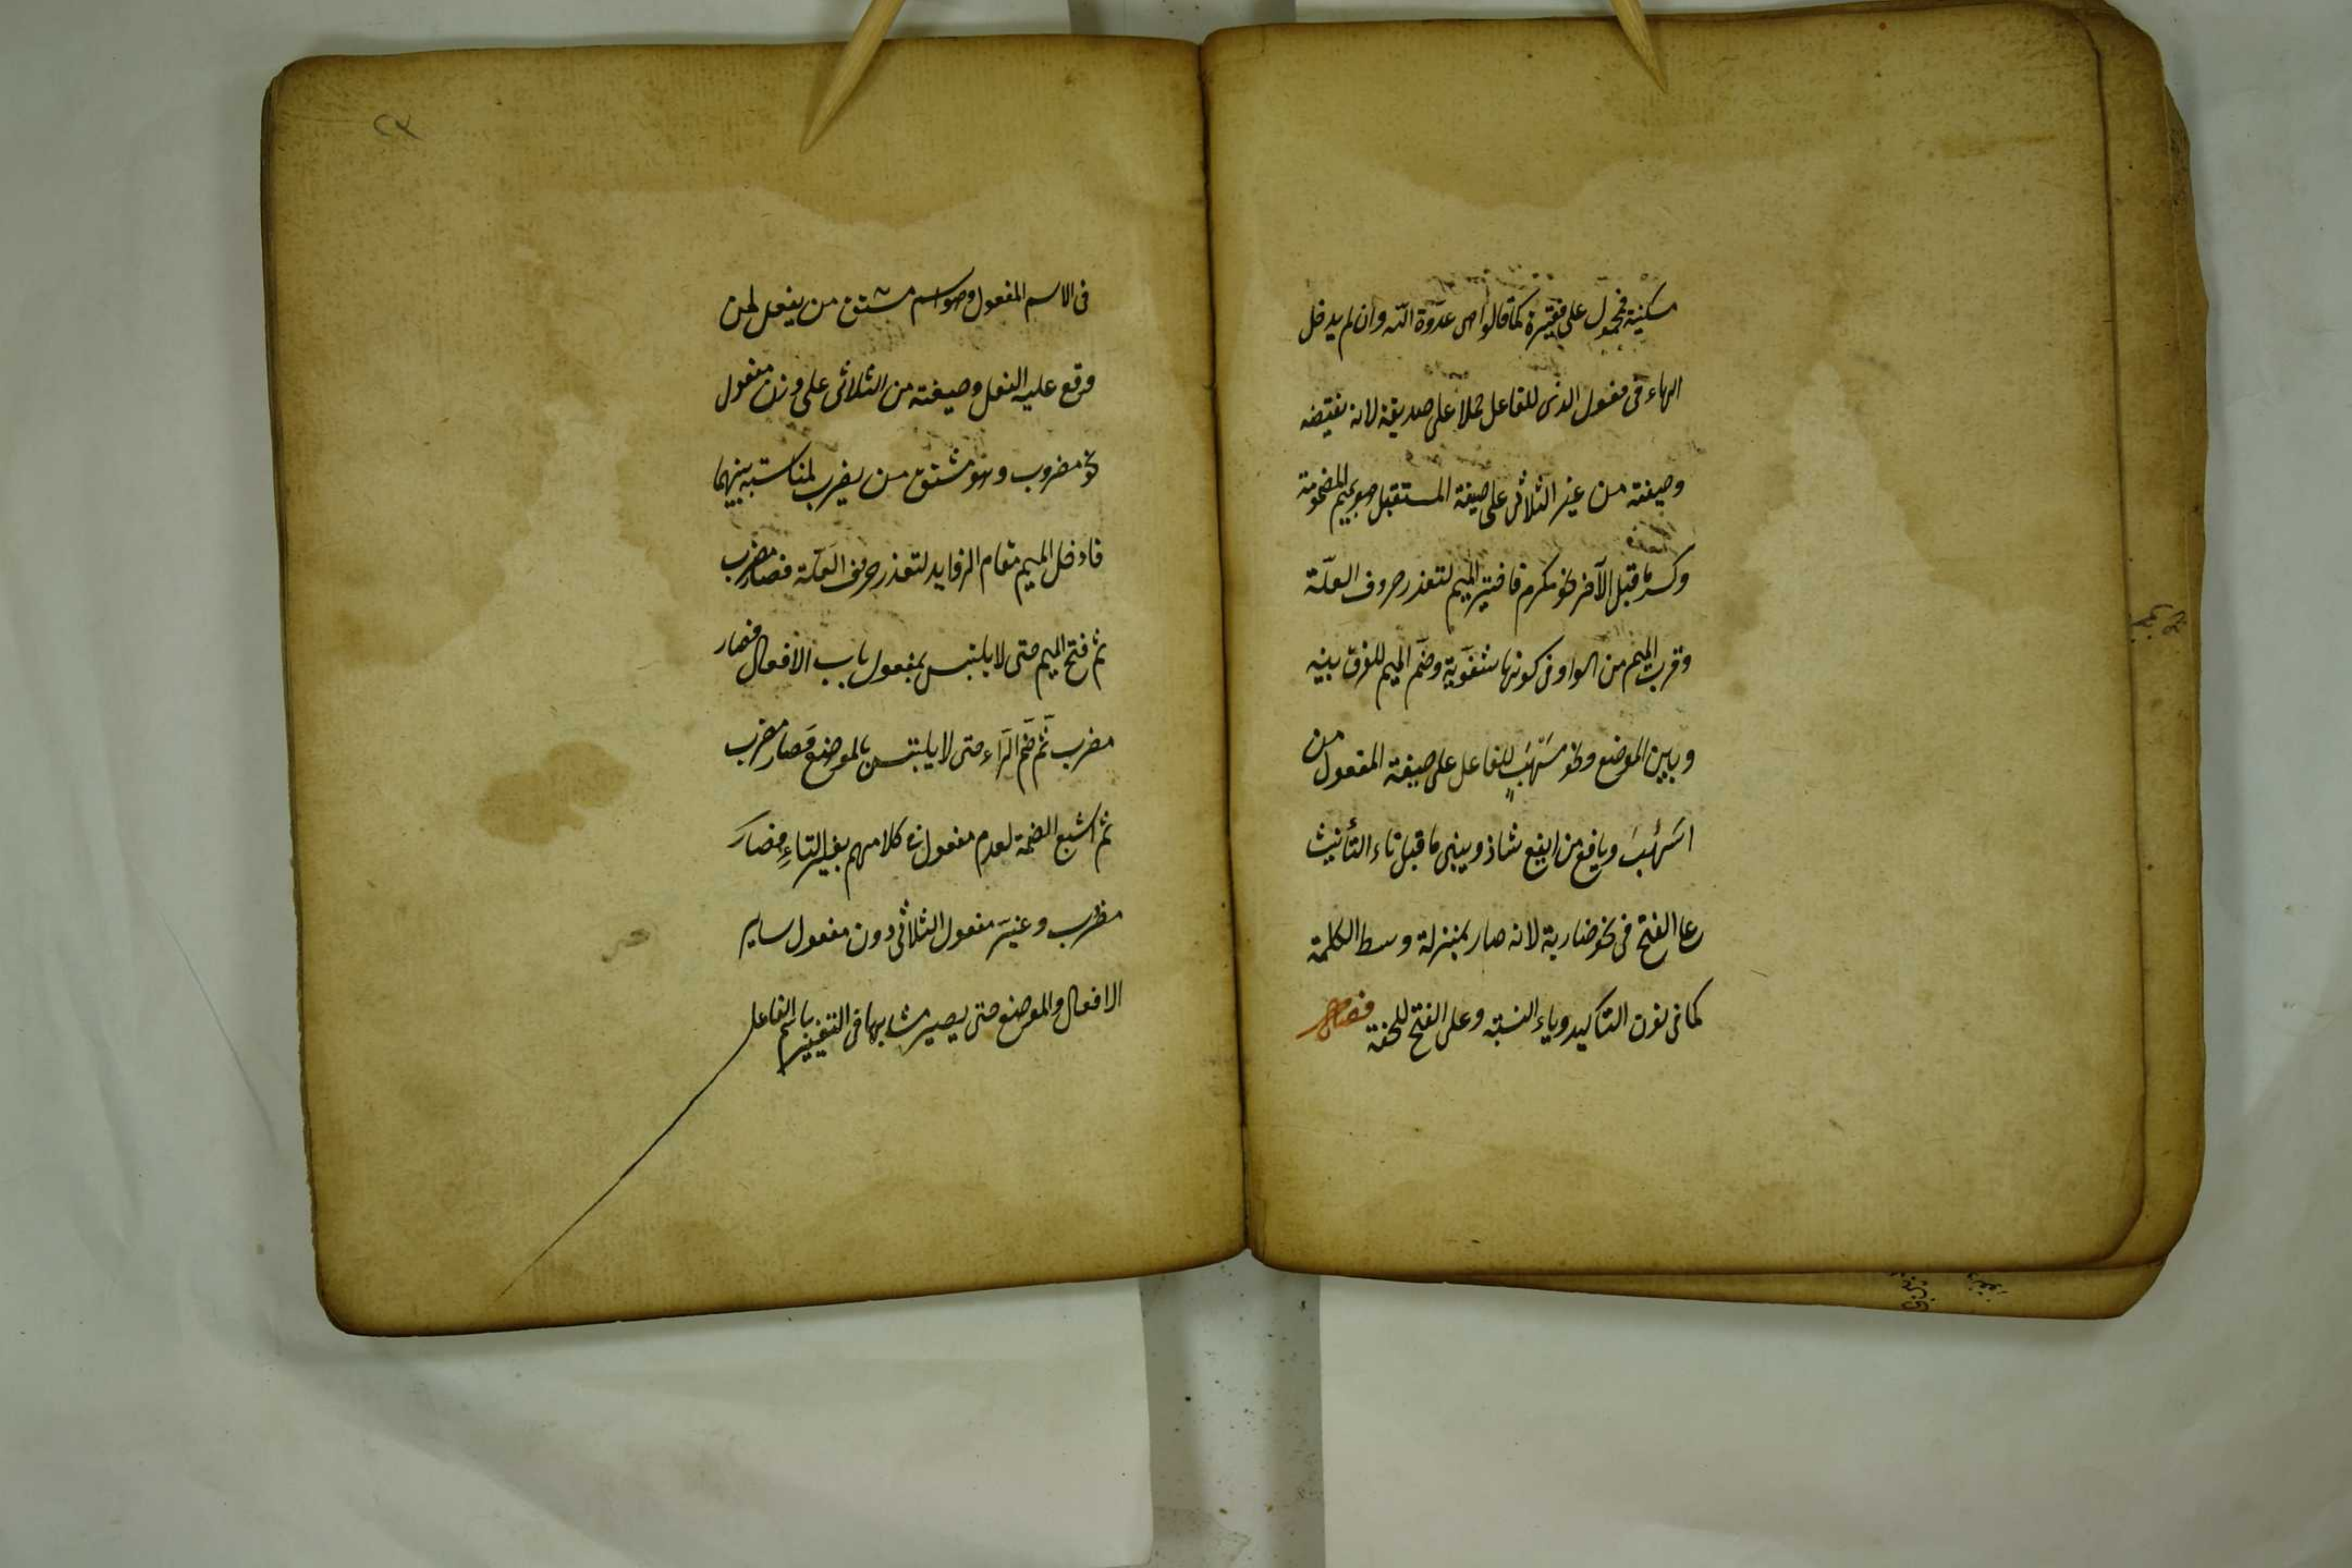 مسكينة فمحمول على فقيرة كما قالوا هى عدوّة الله وان لم يدخل
الهاء فى مفعول الذى للفاعل حملا على صديقة لانه نقيضه
وصيغته من غير الثلاثى على صيغة المستقبل بميم المضمومة
وكسر ما قبل الآخر نحو مكرم فاختير الميم لتعذر حروف العلّة
وقرب الميم من الواو فى كونها شفوّية وضمّ الميم للفرق بينه
وبين الموضع ونحو مسهَب للفاعل على صيغة المفعول من
اسهَبَ ويافع من ايفع شاذ ويبنى ما قبل تاء التأنيث
على الفتح فى نحو ضاربة لانه صار بمنزلة وسط الكلمة
كما فى نون التاكيد وياء النسبة وعلى الفتح للخفة فصل
٢٣
فى الاسم المفعول وهو اسم مشتق من يفعل لمن
وقع عليه الفعل وصيغته من الثلاثى على وزن مفعول
نحو مضروب وهو مشتق من يضرب لمناسبة بينهما
فادخل الميم مقام الزوايد لتعذر حروف العلّة فصار مضرب
ثم فتح الميم حتى لا يلتبس بمفعول باب الافعال فصار
مضرب ثمّ ضمّ الرّاء حتى لا يلتبس بالموضع فصار مضرب
ثم اشبع الضمة لعدم مفعول فى كلامهم بغير التاءِ فصارَ
مضروب وغيّر مفعول الثلاثى دون مفعول ساير
الافعال والموضع حتى يصير مشابها فى التغيير باسم الفاعل